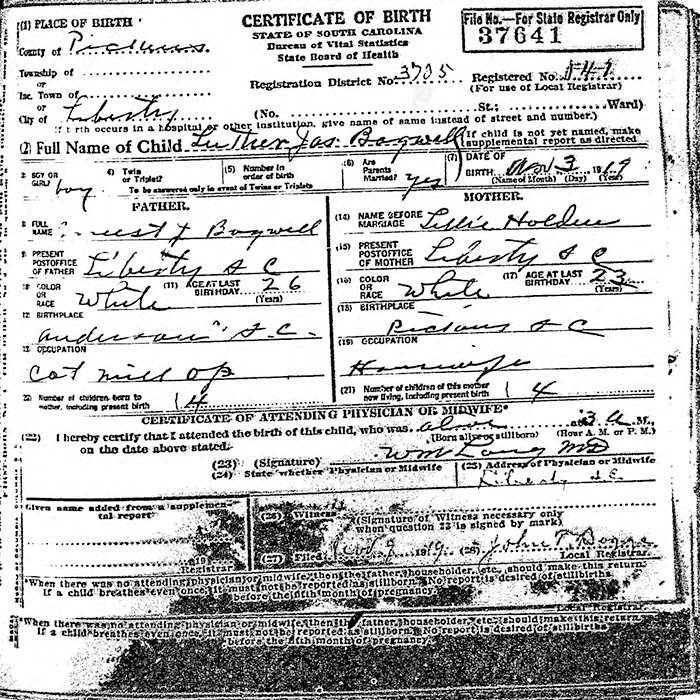 (1) PLACE OF BIRTH
CERTIFICATE OF BIRTH
STATE OF SOUTH CAROLINA
Bureau of Vital Statistics
State Board of Health
File No.—For State Registrar Only
37641
County of Pickens
Township of
or
Inc. Town of
or
City of Liberty
Registration District No. 3705
Registered No.
(For use of Local Registrar)
(No. St.; Ward)
occurs in a hospital or other institution, give name of same instead of street and number.
(2) Full Name of Child Luther Jas. Bagwell
If child is not yet named, make supplemental report as directed
BOY OR GIRL? boy
(4) Twin or Triplet?
(5) Number in order of birth
To be answered only in event of Twins or Triplets
(6) Are Parents Married? yes
(7) DATE OF BIRTH Nov 3 1919
(Name of Month) (Day) (Year)
FATHER.
MOTHER.
FULL NAME Bagwell
(14) NAME BEFORE MARRIAGE Lillie Holden
PRESENT POSTOFFICE OF FATHER Liberty S C
(15) PRESENT POSTOFFICE OF MOTHER Liberty S C
COLOR OR RACE White
(11) AGE AT LAST BIRTHDAY 26 (Years)
(16) COLOR OR RACE White
(17) AGE AT LAST BIRTHDAY 23 (Years)
BIRTHPLACE
Anderson S.C.
(18) BIRTHPLACE
Pickens S C
OCCUPATION
Cot mill op
(19) OCCUPATION
Housewife
Number of children born to mother, including present birth 4
(21) Number of children of this mother now living, including present birth 4
CERTIFICATE OF ATTENDING PHYSICIAN OR MIDWIFE*
(22) I hereby certify that I attended the birth of this child, who was alive at 3 a M.,
on the date above stated. (Born alive or stillborn) (Hour A. M. or P. M.)
(23) (Signature) MD
(24) State whether Physician or Midwife
(25) Address of Physician or Midwife
Liberty
Given name added from a supplemental report
(26) Witness
(Signature of Witness necessary only when question 23 is signed by mark)
Registrar
(27) Filed Nov 9 1919 (28) John T.
Local Registrar
*When there was no attending physician or midwife, then the father, householder, etc. should make this return.
If a child breathes even once, it must not be reported as stillborn. No report is desired of stillbirths
before the fifth month of pregnancy.
Local Registrar
*When there was no attending physician or midwife, then the father, householder, etc. should make this return.
If a child breathes even once, it must not be reported as stillborn. No report is desired of stillbirths
before the fifth month of pregnancy.